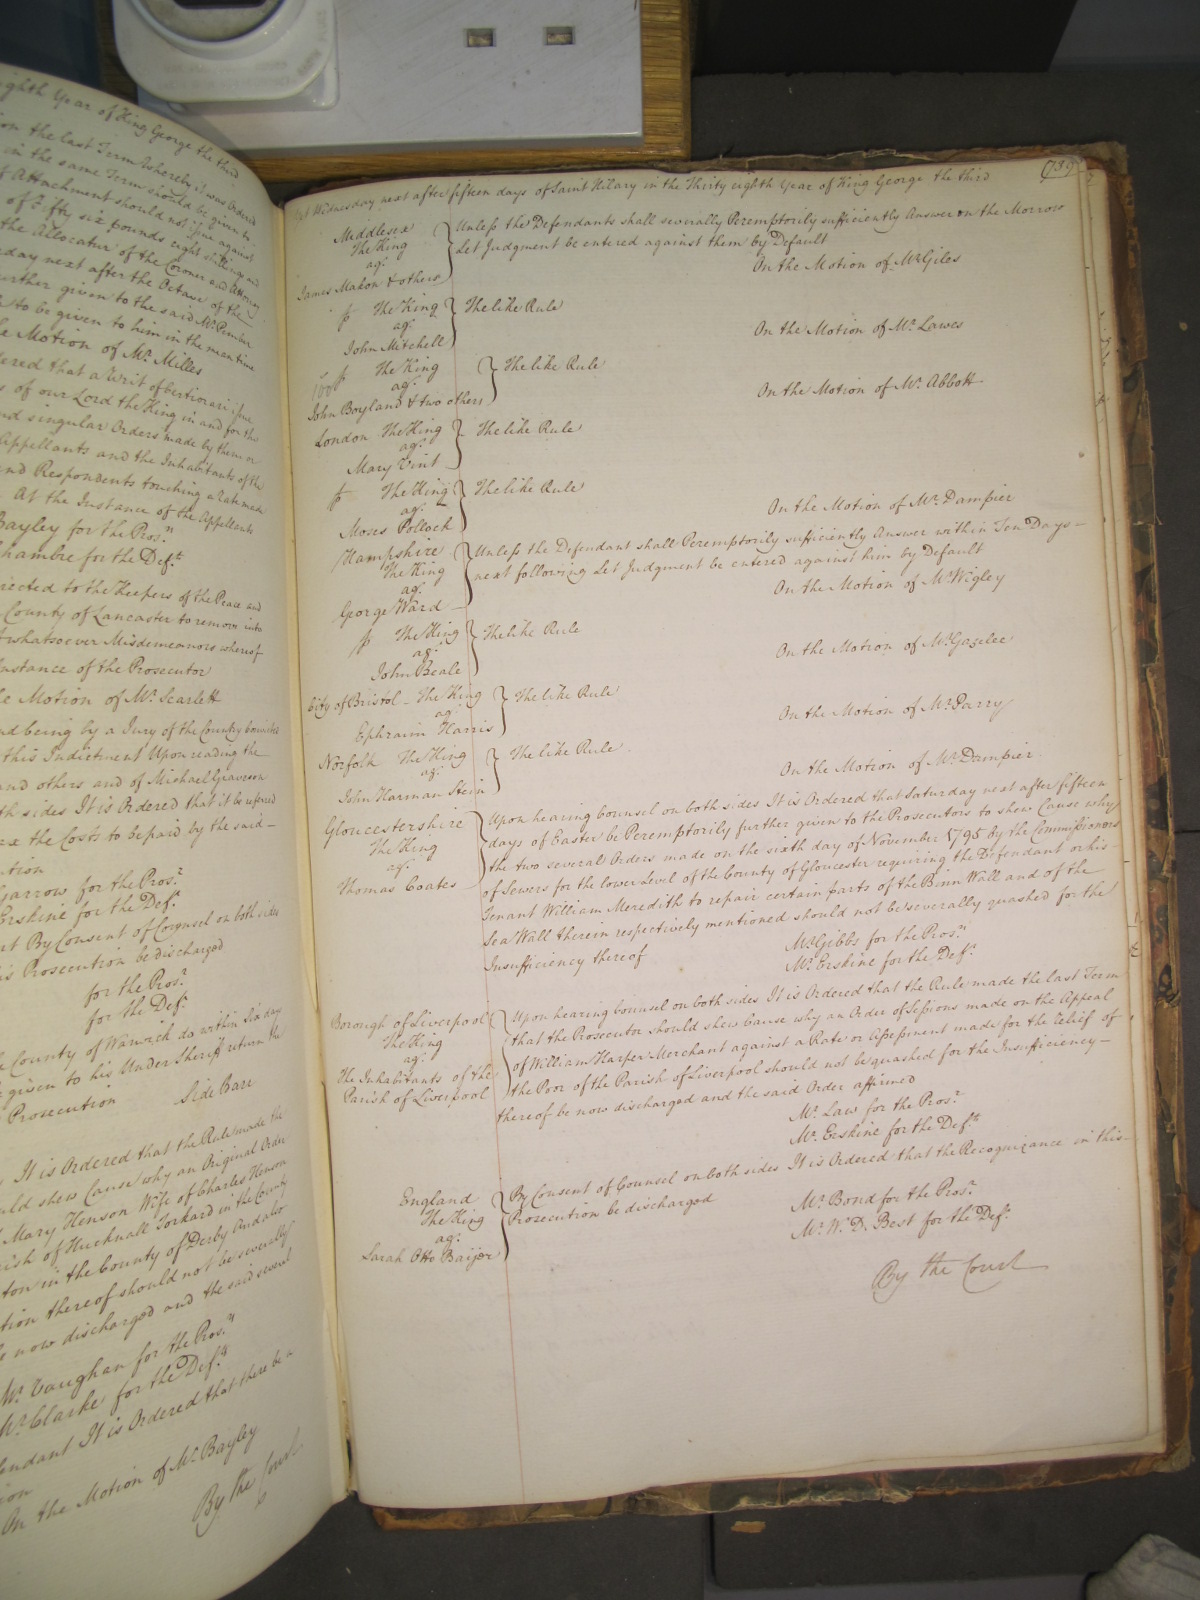 ighth Year of King George the third
on the last Term whereby it was Ordered
in the same Term should be given to
f Attachment should not issue against
of £ fifty six pounds eight shillings and
the Allocatur of the Coroner and Attorney
day next after the Octave of the
urther given to the said Mr. Pember
to be given to him in the mean time
e Motion of Mr. Milles
ered that a Writ of Certiorari issue
s of our Lord the King in and for the
nd singular Orders made by them or
Appellants and the Inhabitants of the
nd Respondents touching a Rate made
At the Instance of the Appellants
Bayley for the Pros.n
hambre for the Def.t
irected to the Keepers of the Peace and
County of Lancaster to remove into
whatsoever Misdemeanors whereof
Instance of the Prosecutor
e Motion of Mr. Scarlett
nd being by a Jury of the Country convicted
this Indictment Upon reading the
and others and of Michael Graveson
th sides It is Ordered that it be referred
ax the Costs to be paid by the said
ution
Garrow for the Pros.r
Erskine for the Def.t
nt By Consent of Counsel on both sides
is Prosecution be discharged
for the Pros.r
for the Def.t
County of Warwick do within six day
given to his Under Sheriff return the
Prosecution
Side Barr
It is Ordered that the Rule made the
uld shew Cause why an Original Order
Mary Henson Wife of Charles Henson
ish of Hucknall Torkard in the County
ton in the County of Derby And also
tion thereof should not be severally
e now discharged and the said several
Mr. Vaughan for the Pros.n
Mr. Clarke for the Def.ts
endant It is Ordered that there be a
ion
On the Motion of Mr. Bayley
By the Court
739
Wednesday next after fifteen days of Saint Hilary in the Thirty eighth Year of King George the third
Middlesex
The King
ag.t
James Makon & others
Unless the Defendants shall severally Peremptorily sufficiently Answer on the Morrow
Let Judgment be entered against them by Default
On the Motion of Mr. Giles
The King
ag.t
John Mitchell
The like Rule
On the Motion of Mr. Lawes
The King
ag.t
John Boyland & two others
The like Rule
On the Motion of Mr. Abbott
London The King
ag.t
Mary Vint
The like Rule
The King
ag.t
Moses Pollock
The like Rule
On the Motion of Mr. Dampier
Hampshire
The King
ag.t
George Ward
Unless the Defendant shall Peremptorily sufficiently Answer within Ten Days
next following Let Judgment be entered against him by Default
On the Motion of Mr. Wigley
The King
ag.t
John Beale
The like Rule
On the Motion of Mr. Gazelee
City of Bristol The King
ag.t
Ephraim Harris
The like Rule
On the Motion of Mr. Parry
Norfolk The King
ag.t
John Harman Stein
The like Rule
On the Motion of Mr. Dampier
Gloucestershire
The King
ag.t
Thomas Coates
Upon hearing Counsel on both sides It is Ordered that Saturday next after fifteen
days of Easter be Peremptorily further given to the Prosecutors to shew Cause why
the two several Orders made on the sixth day of November 1795 By the Commissioners
of Sewers for the lower Level of the County of Gloucester requiring the Defendant or his
Tenant William Meredith to repair certain parts of the Binn Wall and of the
Sea Wall therein respectively mentioned should not be severally quashed for the
Insufficiency thereof
Mr. Gibbs for the Pros.n
Mr. Erskine for the Def.t
Borough of Liverpool
The King
ag.t
The Inhabitants of the
Parish of Liverpool
Upon hearing Counsel on both sides It is Ordered that the Rule made the last Term
that the Prosecutor should shew Cause why an Order of Sessions made on the Appeal
of William Harper Merchant against a Rate or Assessment made for the relief of
the Poor of the Parish of Liverpool should not be quashed for the Insufficiency
thereof be now discharged and the said Order affirmed
Mr. Law for the Pros.r
Mr. Erskine for the Def.ts
England
The King
ag.t
Sarah Otto Baijer
By Consent of Counsel on both sides It is Ordered that the Recognizance in this
Prosecution be discharged
Mr. Bond for the Pros.r
Mr. W. D. Best for the Def.t
By the Court